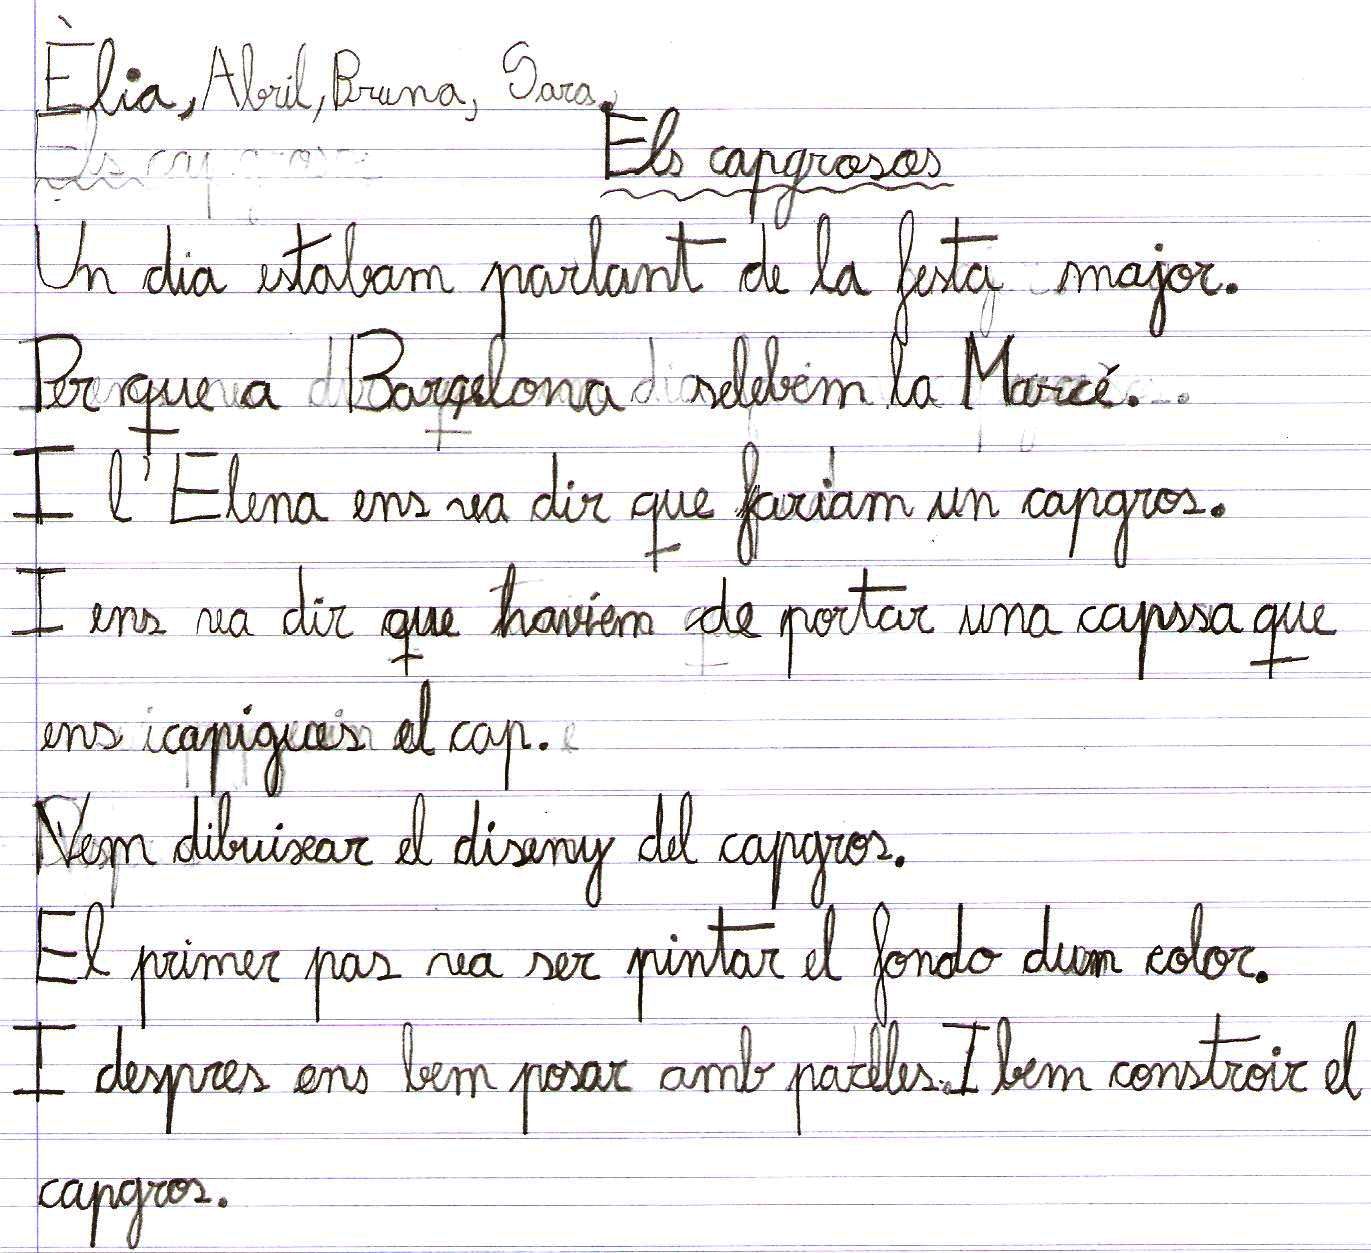 Èlia, Abril, Bruna, Sara.
Els capgrosos
Un dia estabam parlant de la festa major.
Per que a Barçelona selebem la Marcé.
I l'Elena ens va dir que fariam un capgros.
I ens va dir que haviem de portar una capssa que
ens capigues el cap.
Vem dibuixar el diseny del capgros.
El primer pas va ser pintar el fondo dum color.
I despres ens bem posar amb parelles. I bem constroir el
capgros.